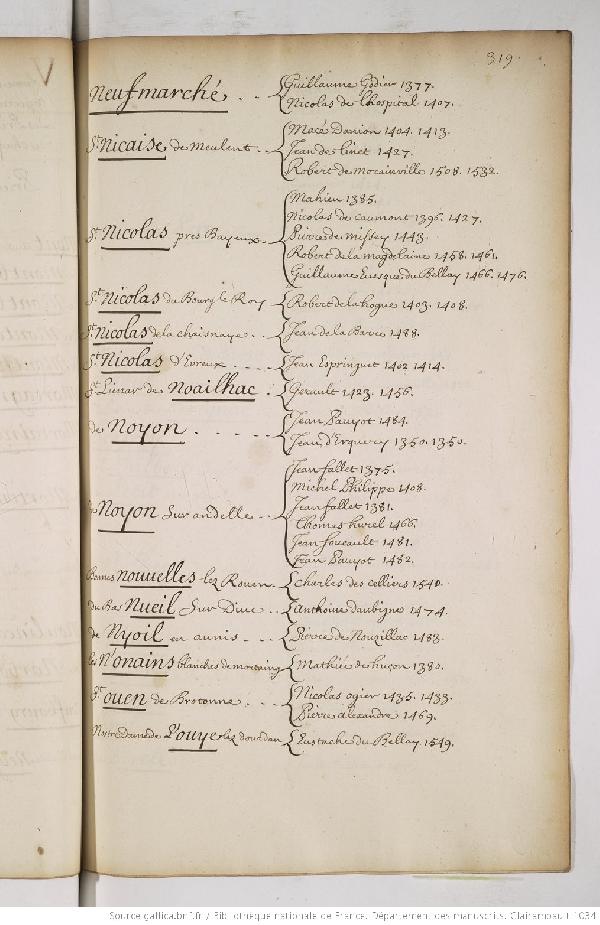 319.
Neufmarché . . . Guillaume Godier 1377.
Nicolas de l'hospital 1407.
St. Nicaise de Meulent. Macé Danion 1404. 1413.
Jean des linet 1427.
Robert de mocainville 1508. 1532.
St. Nicolas pres Bayeux. Mahieu 1385.
Nicolas de caumont 1396. 1427.
Pierre de missey 1443.
Robert de la magdelaine 1458. 1461.
Guillaume Euesque du Bellay 1466. 1476.
St. Nicolas du Bourg le Roy Robert de la hogue 1403. 1408.
St. Nicolas de la chaisnaye. . Jean de la Barre 1488.
St. Nicolas d'Evreux. . . Jean Espringuet 1402 1414.
St. Lienar de Noailhac . Gerault 1423. 1456.
de Noyon . . . . . Jean Pauyot 1484.
Jean d'Erquery 1350. 1350.
Noyon sur andelle . . Jean fallet 1375.
Michel Philippe 1408.
Jean fallet 1381.
thomas hurel 1466.
Jean foucault 1481.
Jean Pauyot 1482.
Bonnes nouuelles lez Rouen. Charles des celliers 1540.
du Bas Nueil sur Diue . . anthoine daubigne 1474.
de Nyoil en aunis . . . Pierre de Nouzillac 1483.
les Nonains blanches de mortaing Mathié de huçon 1380.
St. ouen de Brotonne. . Nicolas ogier 1435. 1433.
Pierre alexandre 1469.
Nostre dame de l'ouye lez dourdan Eustache du Bellay 1549.
Source gallica.bnf.fr / Bibliothèque nationale de France. Département des manuscrits. Clairambault 1034